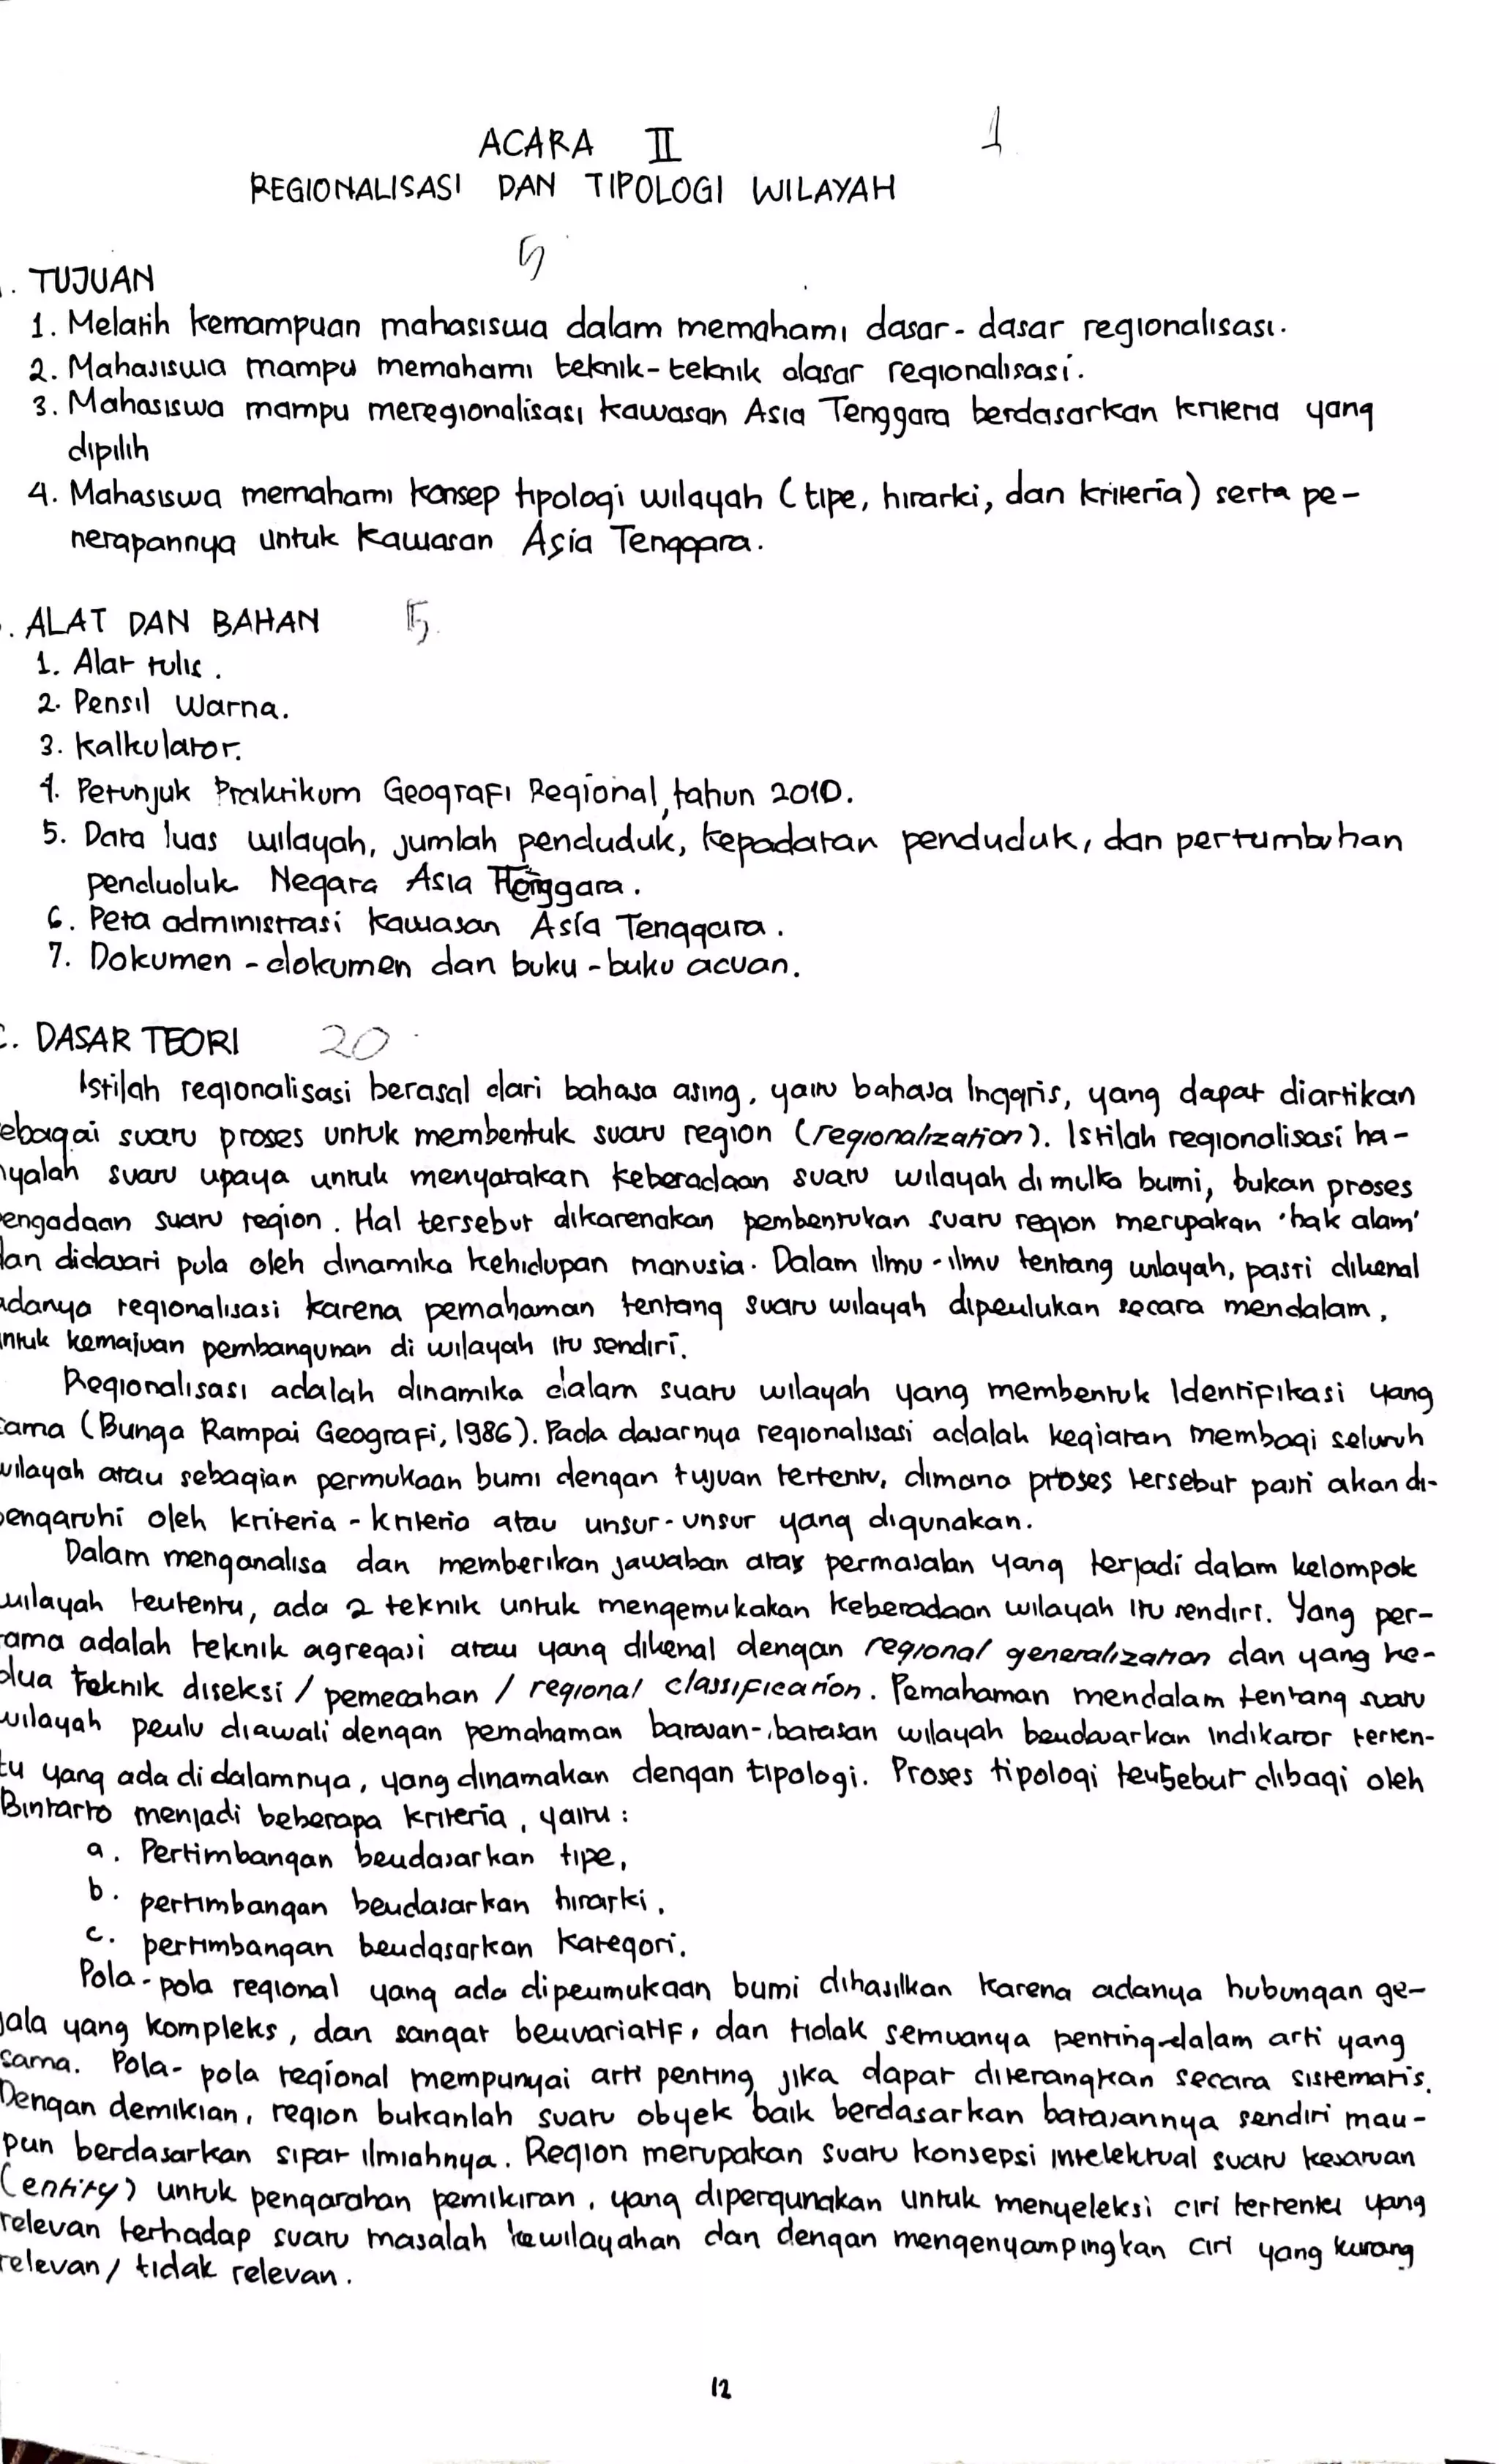 ACARA II
1
REGIONALISASI DAN TIPOLOGI WILAYAH
5
. TUJUAN
1. Melatih kemampuan mahasiswa dalam memahami dasar - dasar regionalisasi.
2. Mahasiswa mampu memahami teknik-teknik dasar regionalisasi.
3. Mahasiswa mampu meregionalisasi kawasan Asia Tenggara berdasarkan kriteria yang
dipilih
4. Mahasiswa memahami konsep tipologi wilayah (tipe, hirarki, dan kriteria) serta pe-
nerapannya untuk kawasan Asia Tenggara.
. ALAT DAN BAHAN 5
1. Alat tulis.
2. Pensil Warna.
3. Kalkulator.
4. Petunjuk Praktikum Geografi Regional, tahun 2010.
5. Data luas wilayah, jumlah penduduk, kepadatan penduduk, dan pertumbuhan
penduduk Negara Asia Tenggara.
6. Peta administrasi kawasan Asia Tenggara.
7. Dokumen - dokumen dan buku - buku acuan.
C. DASAR TEORI 20
Istilah regionalisasi berasal dari bahasa asing, yaitu bahasa Inggris, yang dapat diartikan
ebagai suatu proses untuk membentuk suatu region (regionalization). Istilah regionalisasi ha-
nyalah suatu upaya untuk menyatakan keberadaan suatu wilayah di muka bumi, bukan proses
engadaan suatu region. Hal tersebut dikarenakan pembentukan suatu region merupakan 'hak alam'
dan didasari pula oleh dinamika kehidupan manusia. Dalam ilmu - ilmu tentang wilayah, pasti dikenal
adanya regionalisasi karena pemahaman tentang suatu wilayah diperlukan secara mendalam,
untuk kemajuan pembangunan di wilayah itu sendiri.
Regionalisasi adalah dinamika dalam suatu wilayah yang membentuk Identifikasi yang
sama (Bunga Rampai Geografi, 1986). Pada dasarnya regionalisasi adalah kegiatan membagi seluruh
wilayah atau sebagian permukaan bumi dengan tujuan tertentu, dimana proses tersebut pasti akan di-
pengaruhi oleh kriteria - kriteria atau unsur - unsur yang digunakan.
Dalam menganalisa dan memberikan jawaban atas permasalan yang terjadi dalam kelompok
wilayah tertentu, ada 2 teknik untuk mengemukakan keberadaan wilayah itu sendiri. Yang per-
tama adalah teknik agregasi atau yang dikenal dengan regional generalization dan yang ke-
dua teknik diseksi / pemecahan / regional classification. Pemahaman mendalam tentang suatu
wilayah perlu diawali dengan pemahaman batasan-batasan wilayah berdasarkan Indikator terten-
tu yang ada di dalamnya, yang dinamakan dengan tipologi. Proses tipologi tersebut dibagi oleh
Bintarto menjadi beberapa kriteria, yaitu :
a. Pertimbangan berdasarkan tipe,
b. pertimbangan berdasarkan hirarki,
c. pertimbangan berdasarkan kategori.
Pola - pola regional yang ada dipermukaan bumi dihasilkan karena adanya hubungan ge-
jala yang kompleks, dan sangat bervariatif, dan tidak semuanya penting dalam arti yang
sama. Pola - pola regional mempunyai arti penting jika dapat diterangkan secara sistematis.
Dengan demikian, region bukanlah suatu obyek baik berdasarkan batasannya sendiri mau-
pun berdasarkan sifat ilmiahnya. Region merupakan suatu konsepsi intelektual suatu kesatuan
(entity) untuk pengarahan pemikiran, yang dipergunakan untuk menyeleksi ciri tertentu yang
relevan terhadap suatu masalah kewilayahan dan dengan mengenyampingkan ciri yang kurang
relevan / tidak relevan.
12